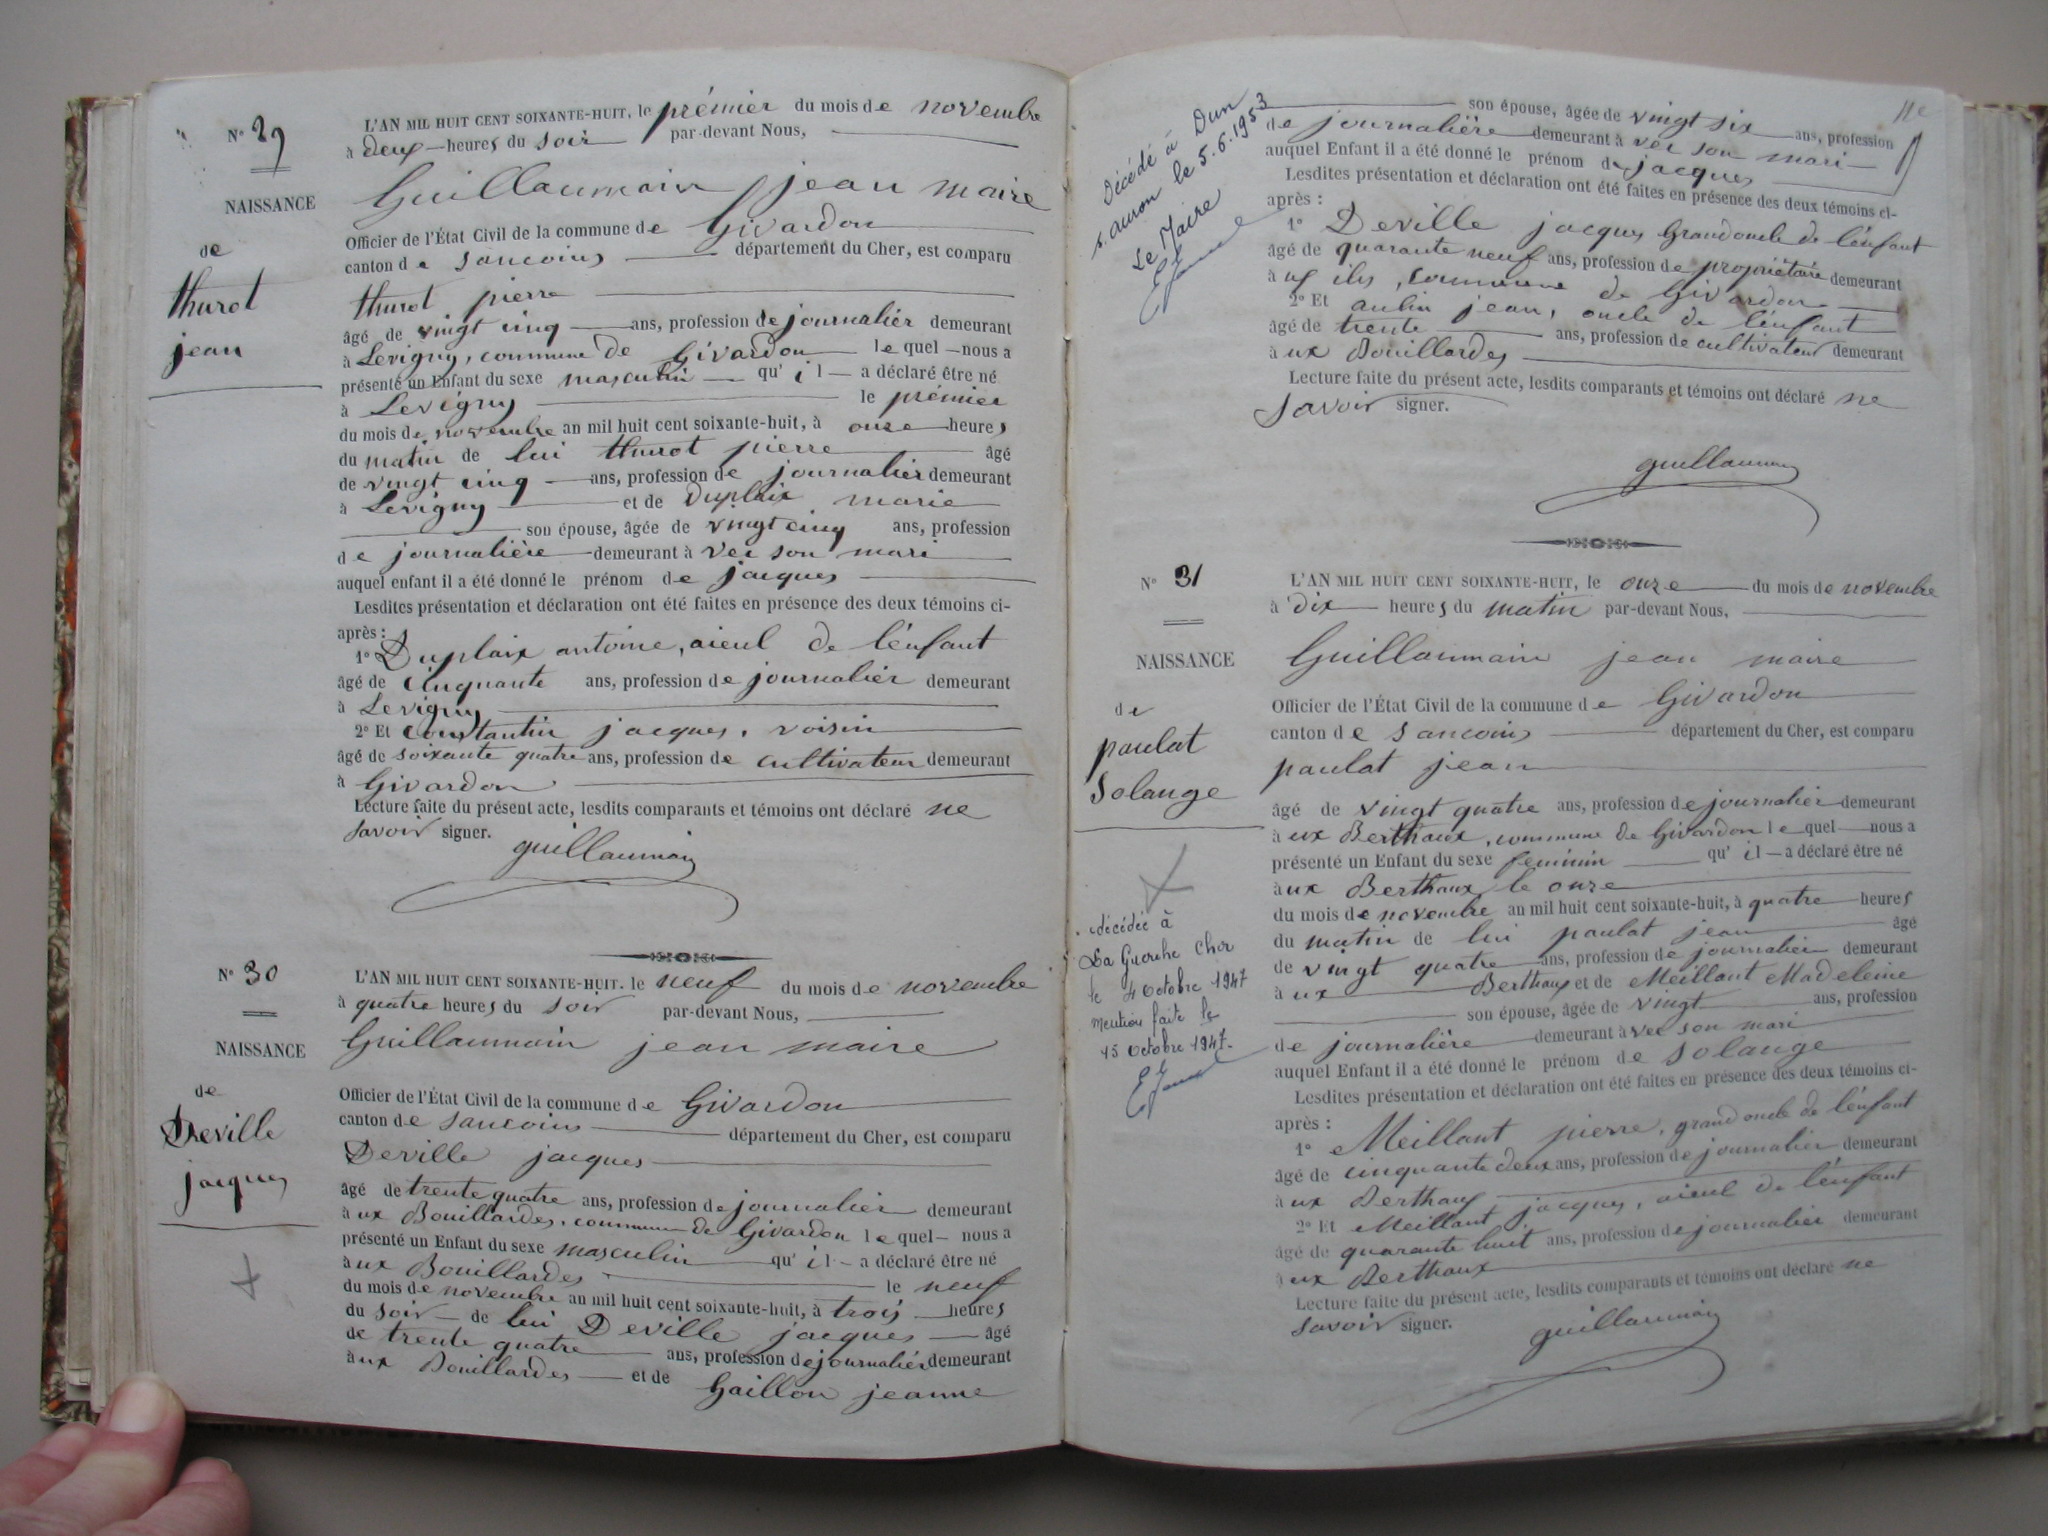 N° 29
NAISSANCE
de
thurot
jean
L'AN MIL HUIT CENT SOIXANTE-HUIT, le prémier du mois de novembre
à deux heures du soir par-devant Nous,
Guillaumain jean maire
Officier de l'État Civil de la commune de Givardon
canton de Sancoins département du Cher, est comparu
thurot pierre
âgé de vingt cinq ans, profession de journalier demeurant
à Levigny, commune de Givardon lequel nous a
présenté un Enfant du sexe masculin qu'il a déclaré être né
à Levigny le prémier
du mois de novembre an mil huit cent soixante-huit, à onze heures
du matin de lui thurot pierre âgé
de vingt cinq ans, profession de journalier demeurant
à Levigny et de Duplaix marie
son épouse, âgée de vingt cinq ans, profession
de journalière demeurant à vec son mari
auquel enfant il a été donné le prénom de jacques
Lesdites présentation et déclaration ont été faites en présence des deux témoins ci-
après :
1° Duplaix antoine, aieul de l'énfant
âgé de cinquante ans, profession de journalier demeurant
à Levigny
2° Et constantin jacques, voisin
âgé de soixante quatre ans, profession de cultivateur demeurant
à Givardon
Lecture faite du présent acte, lesdits comparants et témoins ont déclaré ne
savoir signer.
guillaumain
N° 30
NAISSANCE
de
Deville
jacques
L'AN MIL HUIT CENT SOIXANTE-HUIT. le neuf du mois de novembre
à quatre heures du soir par-devant Nous,
Guillaumain jean maire
Officier de l'État Civil de la commune de Givardon
canton de Sancoins département du Cher, est comparu
Deville jacques
âgé de trente quatre ans, profession de journalier demeurant
à ux Bouillardes, commune de Givardon lequel nous a
présenté un Enfant du sexe masculin qu'il a déclaré être né
à ux Bouillardes le neuf
du mois de novembre an mil huit cent soixante-huit, à trois heures
du soir de lui Deville jacques âgé
de trente quatre ans, profession de journalier demeurant
à ux Bouillardes et de Gaillon jeanne
11e
Décédé à Dun
s. auron le 5.6.1953
Le Maire
son épouse, âgée de vingt six ans, profession
de journalière demeurant à vec son mari
auquel Enfant il a été donné le prénom de jacques
Lesdites présentation et déclaration ont été faites en présence des deux témoins ci-
après :
1° Deville jacques Grandoncle de l'énfant
âgé de quarante neuf ans, profession de propriétaire demeurant
à commune de Givardon
2° Et aubin jean, oncle de l'énfant
âgé de trente ans, profession de cultivateur demeurant
à ux Bouillardes
Lecture faite du présent acte, lesdits comparants et témoins ont déclaré ne
savoir signer.
guillaumain
N° 31
NAISSANCE
de
paulat
Solange
décédée à
La Guerche Cher
le 4 Octobre 1947
Mention faite le
15 Octobre 1947.
L'AN MIL HUIT CENT SOIXANTE-HUIT, le onze du mois de novembre
à dix heures du matin par-devant Nous,
Guillaumain jean maire
Officier de l'État Civil de la commune de Givardon
canton de Sancoins département du Cher, est comparu
paulat jean
âgé de vingt quatre ans, profession de journalier demeurant
à ux Berthaux, commune de Givardon lequel nous a
présenté un Enfant du sexe feminin qu'il a déclaré être né
à ux Berthaux le onze
du mois de novembre an mil huit cent soixante-huit, à quatre heures
du matin de lui paulat jean âgé
de vingt quatre ans, profession de journalier demeurant
à ux Berthaux et de Meillant Madeleine
son épouse, âgée de vingt ans, profession
de journalière demeurant à vec son mari
auquel Enfant il a été donné le prénom de Solange
Lesdites présentation et déclaration ont été faites en présence des deux témoins ci-
après :
1° Meillant pierre, grand oncle de l'énfant
âgé de cinquante deux ans, profession de journalier demeurant
à ux Berthaux
2° Et Meillant jacques, aieul de l'énfant
âgé de quarante huit ans, profession de journalier demeurant
à ux Berthaux
Lecture faite du présent acte, lesdits comparants et témoins ont déclaré ne
savoir signer.
guillaumain